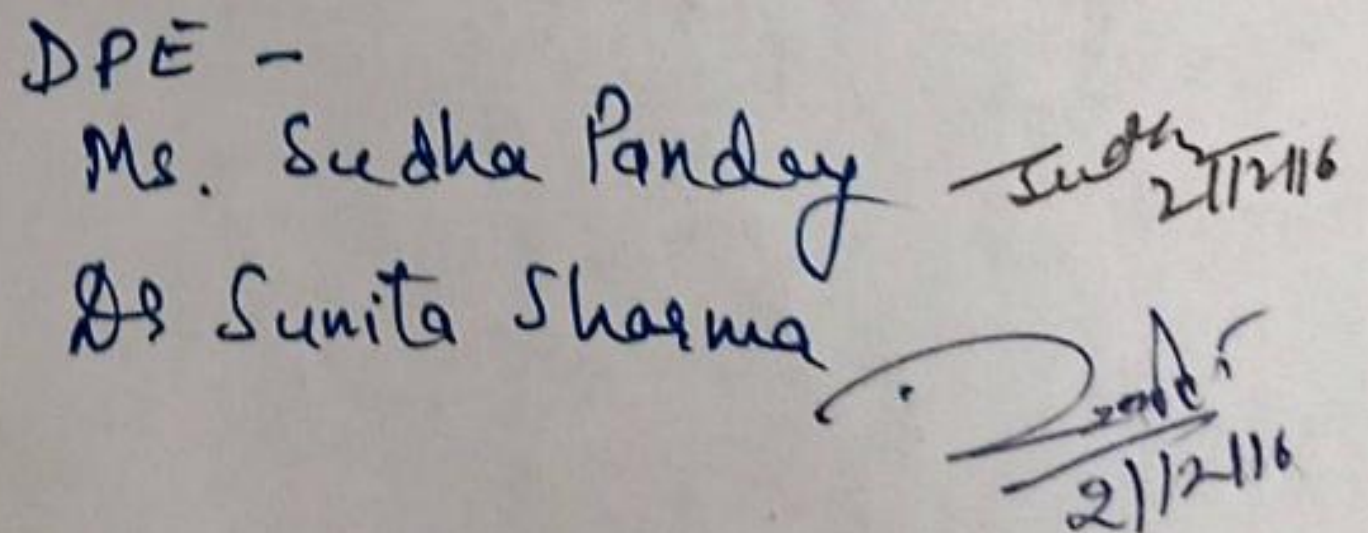 DPE -
Ms. Sudha Panday Sudha 2/12/16
Dr Sunita Sharma
2/12/16